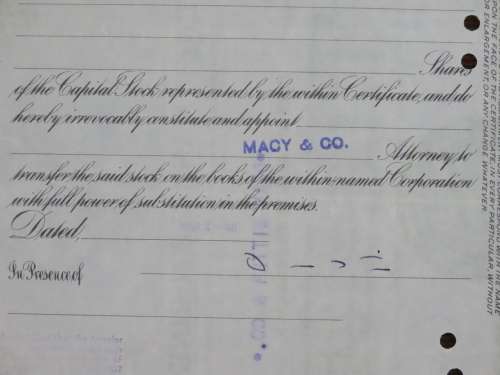 Shares
of the Capital Stock represented by the within Certificate, and do
hereby irrevocably constitute and appoint
MACY & CO.
Attorney to
transfer the said stock on the books of the within-named Corporation
with full power of substitution in the premises.
Dated,
In Presence of
UPON THE FACE OF THE CERTIFICATE, IN EVERY PARTICULAR, WITHOUT
OR ENLARGEMENT, OR ANY CHANGE WHATEVER
THE NAME